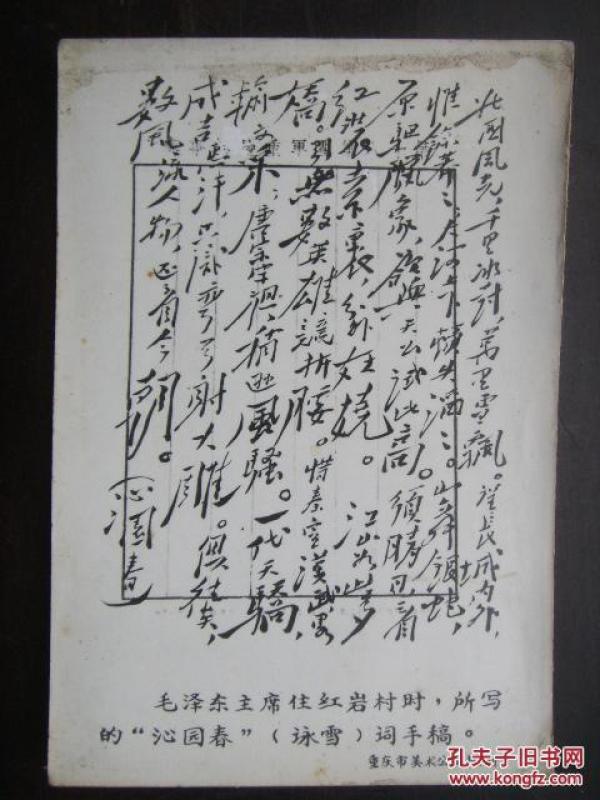 北国風光，千里冰封，萬里雪飄。望長城内外，
惟餘莽莽；大河上下，頓失滔滔。山舞銀蛇，
原驅臘象，欲與天公試比高。須晴日，看
紅裝素裹，分外妖嬈。江山如此多
嬌，引無數英雄競折腰。惜秦皇漢武，畧
輸文采；唐宗宋祖，稍遜風騷。一代天驕，
成吉思汗，只識彎弓射大雕。俱往矣，
數風流人物，還看今朝。
沁園春
毛泽东主席住红岩村时，所写
的“沁园春”（咏雪）词手稿。
重庆市美术公
孔夫子旧书网
www.kongfz.com